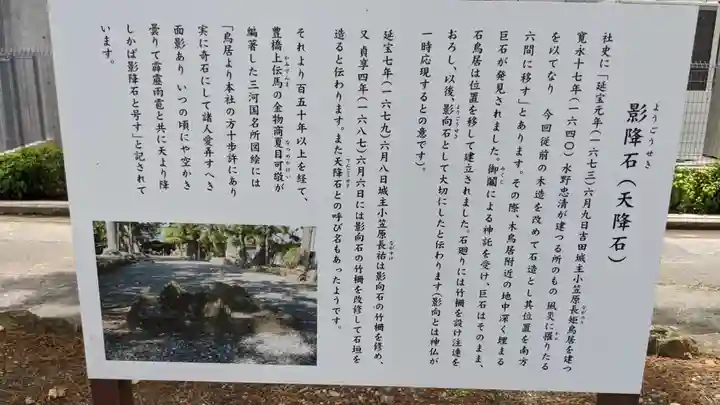 影降石(天降石)
ようごうせき
社史に「延宝元年(一六七三)六月九日吉田城主小笠原長矩鳥居を建つ
寛永十七年(一六四〇)水野忠清が建つる所のもの 風災に罹りたる
を以てなり 今回従前の木造を改めて石造とし其位置を南方
六間に移す」とあります。その際、木鳥居附近の地中深く埋まる
巨石が発見されました。御鬮による神託を受け、巨石はそのまま、
石鳥居は位置を移して建立されました。石廻りには竹柵を設け注連を
おろし、以後、影向石として大切にしたと伝わります(影向とは神仏が
一時応現するとの意です)。
延宝七年(一六七九)六月八日城主小笠原長祐は影向石の竹柵を修め、
又 貞享四年(一六八七)六月六日には影向石の竹柵を改修して石垣を
造ると伝わります。また天降石との呼び名もあったようです。
それより百五十年以上を経て、
豊橋上伝馬の金物商夏目可敬が
編著した三河国名所図絵には
「鳥居より本社の方十歩許にあり
実に奇石にして諸人愛弄すへき
面影あり いつの頃にや空かき
曇りて霹靂雨雹と共に天より降
しかば影降石と号す」と記されて
います。